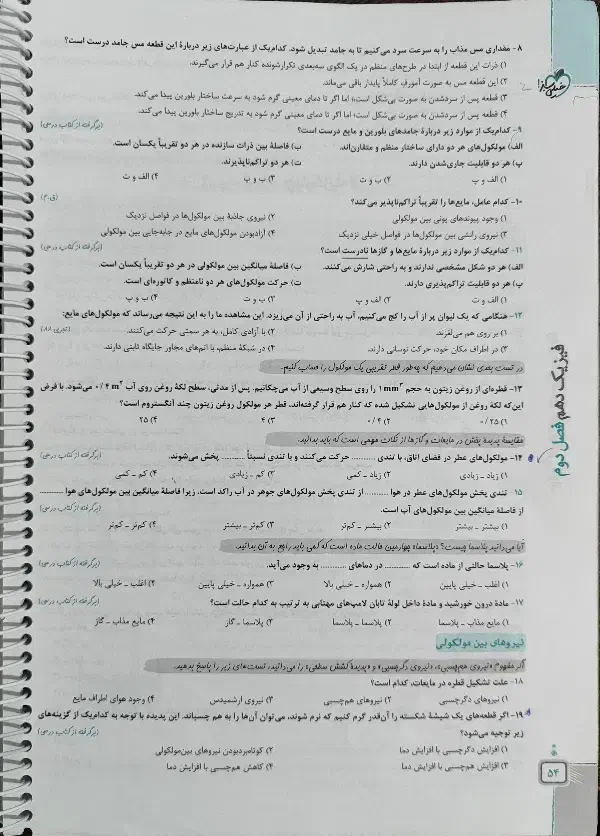 ۸- مقداری مس مذاب را به سرعت سرد می‌کنیم تا به جامد تبدیل شود. کدام‌یک از عبارت‌های زیر دربارهٔ این قطعه مس جامد درست است؟
۱) ذرات این قطعه از ابتدا در طرح‌های منظم در یک الگوی سه‌بعدی تکرارشونده کنار هم قرار می‌گیرند.
۲) این قطعه مس به صورت آمورف کاملاً پایدار باقی می‌ماند.
۳) قطعه پس از سردشدن به صورت بی‌شکل است؛ اما اگر تا دمای معینی گرم شود به سرعت ساختار بلورین پیدا می‌کند.
۴) قطعه پس از سردشدن به صورت بی‌شکل است؛ اما اگر تا دمای معینی گرم شود به تدریج ساختار بلورین پیدا می‌کند.
۹- کدام‌یک از موارد زیر دربارهٔ جامدهای بلورین و مایع درست است؟ (برگرفته از کتاب درسی)
الف) مولکول‌های هر دو دارای ساختار منظم و متقارن‌اند. ب) فاصلهٔ بین ذرات سازنده در هر دو تقریباً یکسان است.
پ) هر دو قابلیت جاری‌شدن دارند. ت) هر دو تراکم‌ناپذیرند.
۱) الف و پ ۲) ب و ت ۳) ب و پ ۴) الف و ت
۱۰- کدام عامل، مایع‌ها را تقریباً تراکم‌ناپذیر می‌کند؟
۱) وجود پیوندهای یونی بین مولکولی ۲) نیروی جاذبهٔ بین مولکول‌ها در فواصل نزدیک
۳) نیروی رانشی بین مولکول‌ها در فواصل خیلی نزدیک ۴) آزادبودن مولکول‌های مایع در جابه‌جایی بین مولکولی
۱۱- کدام‌یک از موارد زیر دربارهٔ مایع‌ها و گازها نادرست است؟ (برگرفته از کتاب درسی)
الف) هر دو شکل مشخصی ندارند و به راحتی شارش می‌کنند. ب) فاصلهٔ میانگین بین مولکولی در هر دو تقریباً یکسان است.
پ) هر دو قابلیت تراکم‌پذیری دارند. ت) حرکت مولکول‌های هر دو نامنظم و کاتوره‌ای است.
۱) الف و ت ۲) الف و پ ۳) ب و ت ۴) ب و پ
۱۲- هنگامی که یک لیوان پر از آب را کج می‌کنیم، آب به راحتی از آن می‌ریزد. این مشاهده ما را به این نتیجه می‌رساند که مولکول‌های مایع:
۱) بر روی هم می‌لغزند. ۲) با آزادی کامل، به هر سمتی حرکت می‌کنند.
۳) در اطراف مکان خود، حرکت نوسانی دارند. ۴) در شبکهٔ منظم، با اتم‌های مجاور جایگاه ثابتی دارند.
در تست بعدی نشان می‌دهیم که چه‌طور قطر تقریبی یک مولکول را حساب کنیم.
۱۳- قطره‌ای از روغن زیتون به حجم ۱mm³ را روی سطح وسیعی از آب می‌چکانیم. پس از مدتی، سطح لکهٔ روغن روی آب ۰/۴m² می‌شود. با فرض
این‌که لکهٔ روغن از مولکول‌هایی تشکیل شده که کنار هم قرار گرفته‌اند، قطر هر مولکول روغن زیتون چند آنگستروم است؟
۱) ۰/۲۵ ۲) ۰/۴ ۳) ۴ ۴) ۲۵
مقایسهٔ پدیدهٔ پخش در مایعات و گازها از نکات مهمی است که باید بدانید.
۱۴- مولکول‌های عطر در فضای اتاق، با تندی .......... حرکت می‌کنند و با تندی نسبتاً .......... پخش می‌شوند. (برگرفته از کتاب درسی)
۱) زیاد ـ زیادی ۲) زیاد ـ کمی ۳) کم ـ زیادی ۴) کم ـ کمی
۱۵- تندی پخش مولکول‌های عطر در هوا .......... از تندی پخش مولکول‌های جوهر در آب راکد است، زیرا فاصلهٔ میانگین بین مولکول‌های هوا ..........
از فاصلهٔ میانگین بین مولکول‌های آب است. (برگرفته از کتاب درسی)
۱) بیشتر ـ بیشتر ۲) بیشتر ـ کم‌تر ۳) کم‌تر ـ بیشتر ۴) کم‌تر ـ کم‌تر
آیا می‌دانید پلاسما چیست؟ «پلاسما» چهارمین حالت ماده است که کمی باید راجع به آن بدانید.
۱۶- پلاسما حالتی از ماده است که .......... در دماهای .......... به وجود می‌آید. (برگرفته از کتاب درسی)
۱) اغلب ـ خیلی پایین ۲) همواره ـ خیلی بالا ۳) همواره ـ خیلی پایین ۴) اغلب ـ خیلی بالا
۱۷- مادهٔ درون خورشید و مادهٔ داخل لولهٔ تابان لامپ‌های مهتابی به ترتیب به کدام حالت است؟ (برگرفته از کتاب درسی)
۱) مایع مذاب ـ پلاسما ۲) پلاسما ـ پلاسما ۳) پلاسما ـ گاز ۴) مایع مذاب ـ گاز
نیروهای بین مولکولی
اگر مفهوم «نیروی هم‌چسبی»، «نیروی دگرچسبی» و «پدیدهٔ کشش سطحی» را می‌دانید، تست‌های زیر را پاسخ بدهید.
۱۸- علت تشکیل قطره در مایعات، کدام است؟
۱) نیروهای دگرچسبی ۲) نیروهای هم‌چسبی ۳) نیروی ارشمیدس ۴) وجود هوای اطراف مایع
۱۹- اگر قطعه‌های یک شیشهٔ شکسته را آن‌قدر گرم کنیم که نرم شوند، می‌توان آن‌ها را به هم چسباند. این پدیده با توجه به کدام‌یک از گزینه‌های
زیر توجیه می‌شود؟ (برگرفته از کتاب درسی)
۱) افزایش دگرچسبی با افزایش دما ۲) کوتاه‌بردبودن نیروهای بین‌مولکولی
۳) افزایش هم‌چسبی با افزایش دما ۴) کاهش هم‌چسبی با افزایش دما
فیزیک دهم فصل دوم
۵۴